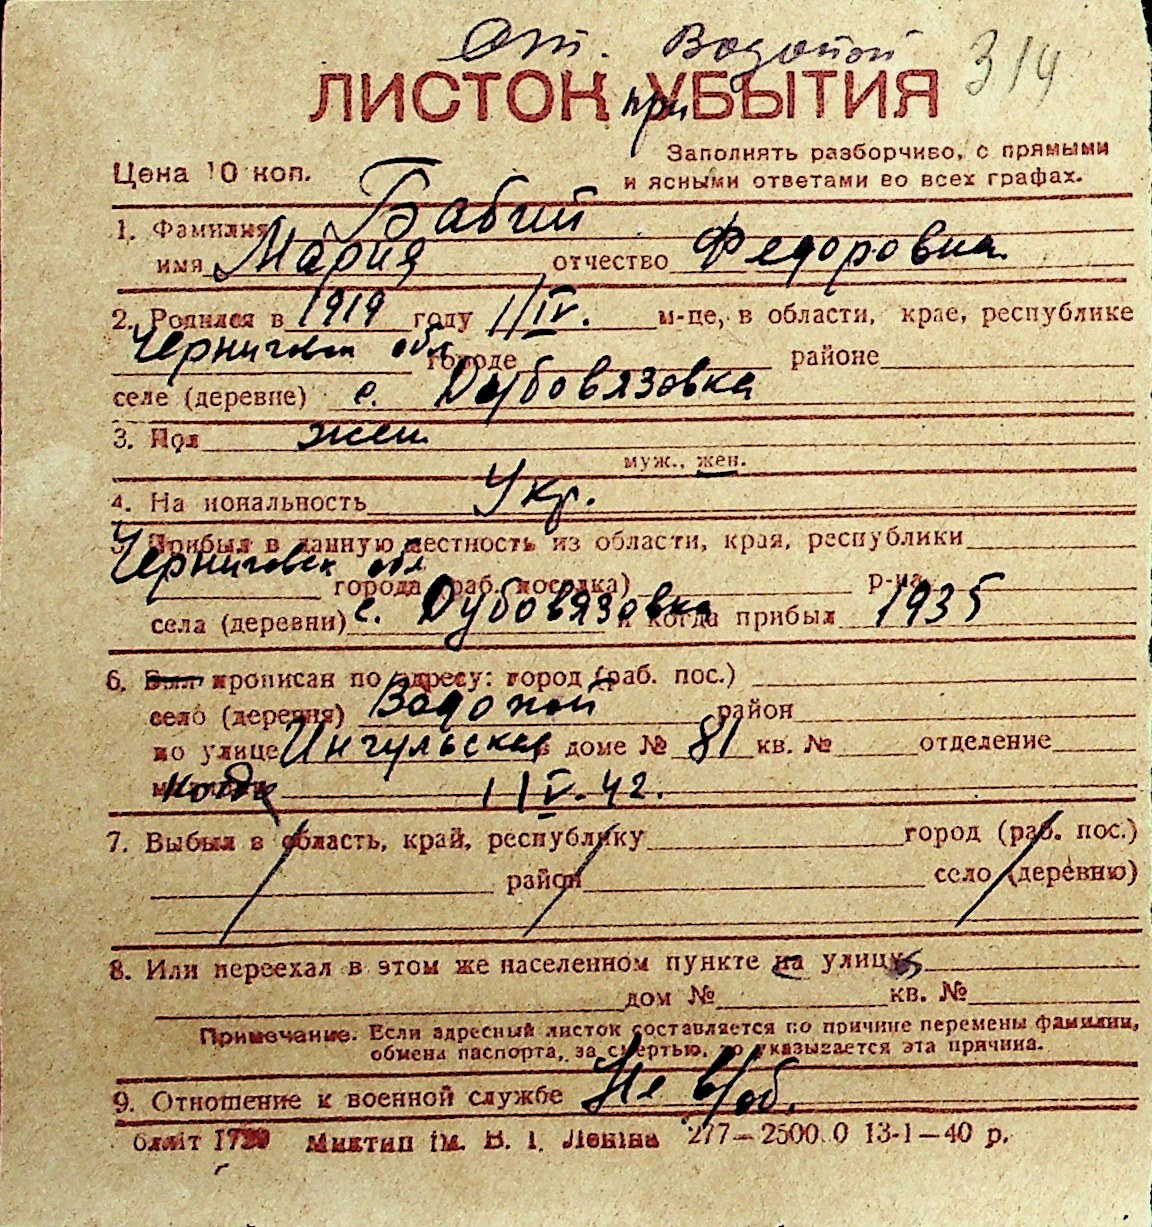 Ст. Водопой
314
ЛИСТОК при УБЫТИЯ
Цена 10 коп.
Заполнять разборчиво, с прямыми
и ясными ответами во всех графах.
1. Фамилия Бабий
имя Мария отчество Федоровна
2. Родился в 1919 году 1/IV. м-це, в области, крае, республике
Черниговск обл городе районе
селе (деревне) с. Дубовязовка
3. Пол жен
муж., жен.
4. На иональность Укр.
5. Прибыл в данную местность из области, края, республики
Черниговск обл города (раб. поселка) р-на
села (деревни) с. Дубовязовка и когда прибыл 1935
6. Был прописан по адресу: город (раб. пос.)
село (деревня) Водопой район
по улице Ингульская в доме № 81 кв. № отделение
когда 1 IV. 42.
7. Выбыл в область, край, республику город (раб. пос.)
район село (деревню)
8. Или переехал в этом же населенном пункте на улицу
дом № кв. №
Примечание. Если адресный листок составляется по причине перемены фамилии,
обмена паспорта, за смертью, то указывается эта причина.
9. Отношение к военной службе Не в/об.
Міктип ім. В. І. Леніна 277—2500.0 13-1—40 р.